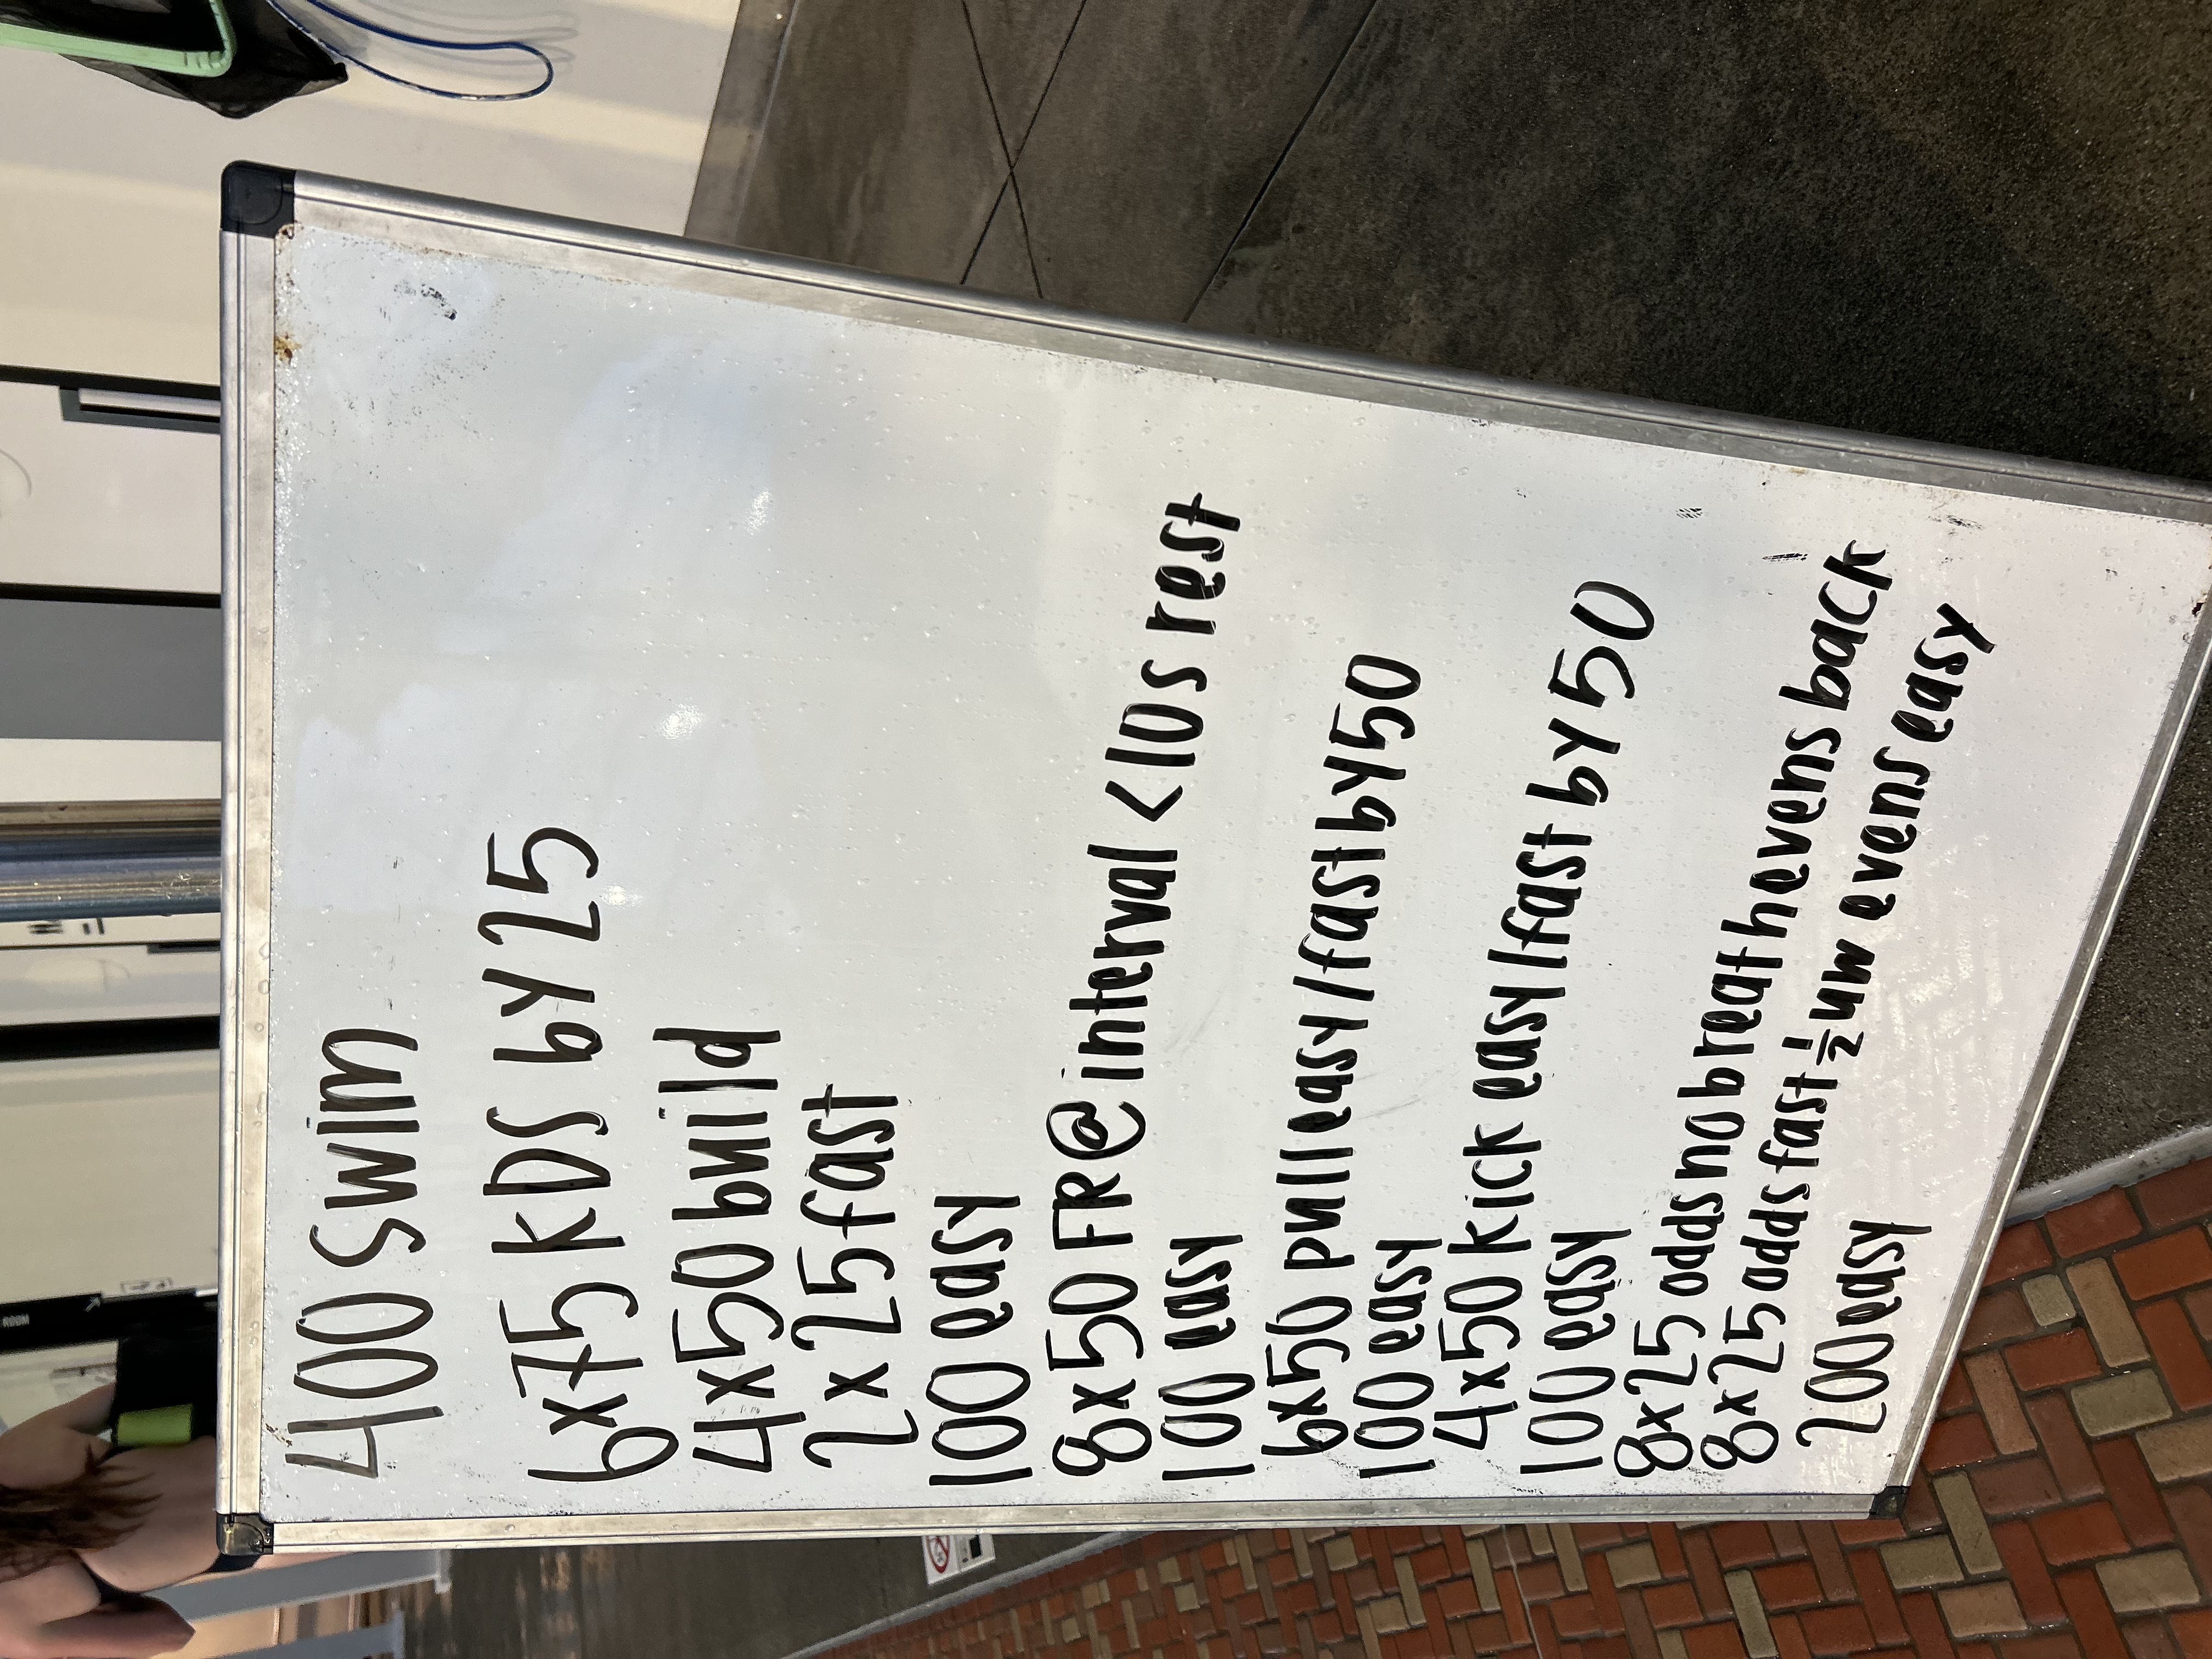 400 swim
6x75 KDS by 25
4x50 build
2x25 fast
100 easy
8x50 FR@interval <10s rest
100 easy
6x50 pull easy/fast by 50
100 easy
4x50 kick easy/fast by 50
100 easy
8x25 odds no breath evens back
8x25 odds fast ½ uw evens easy
200 easy
ROOM